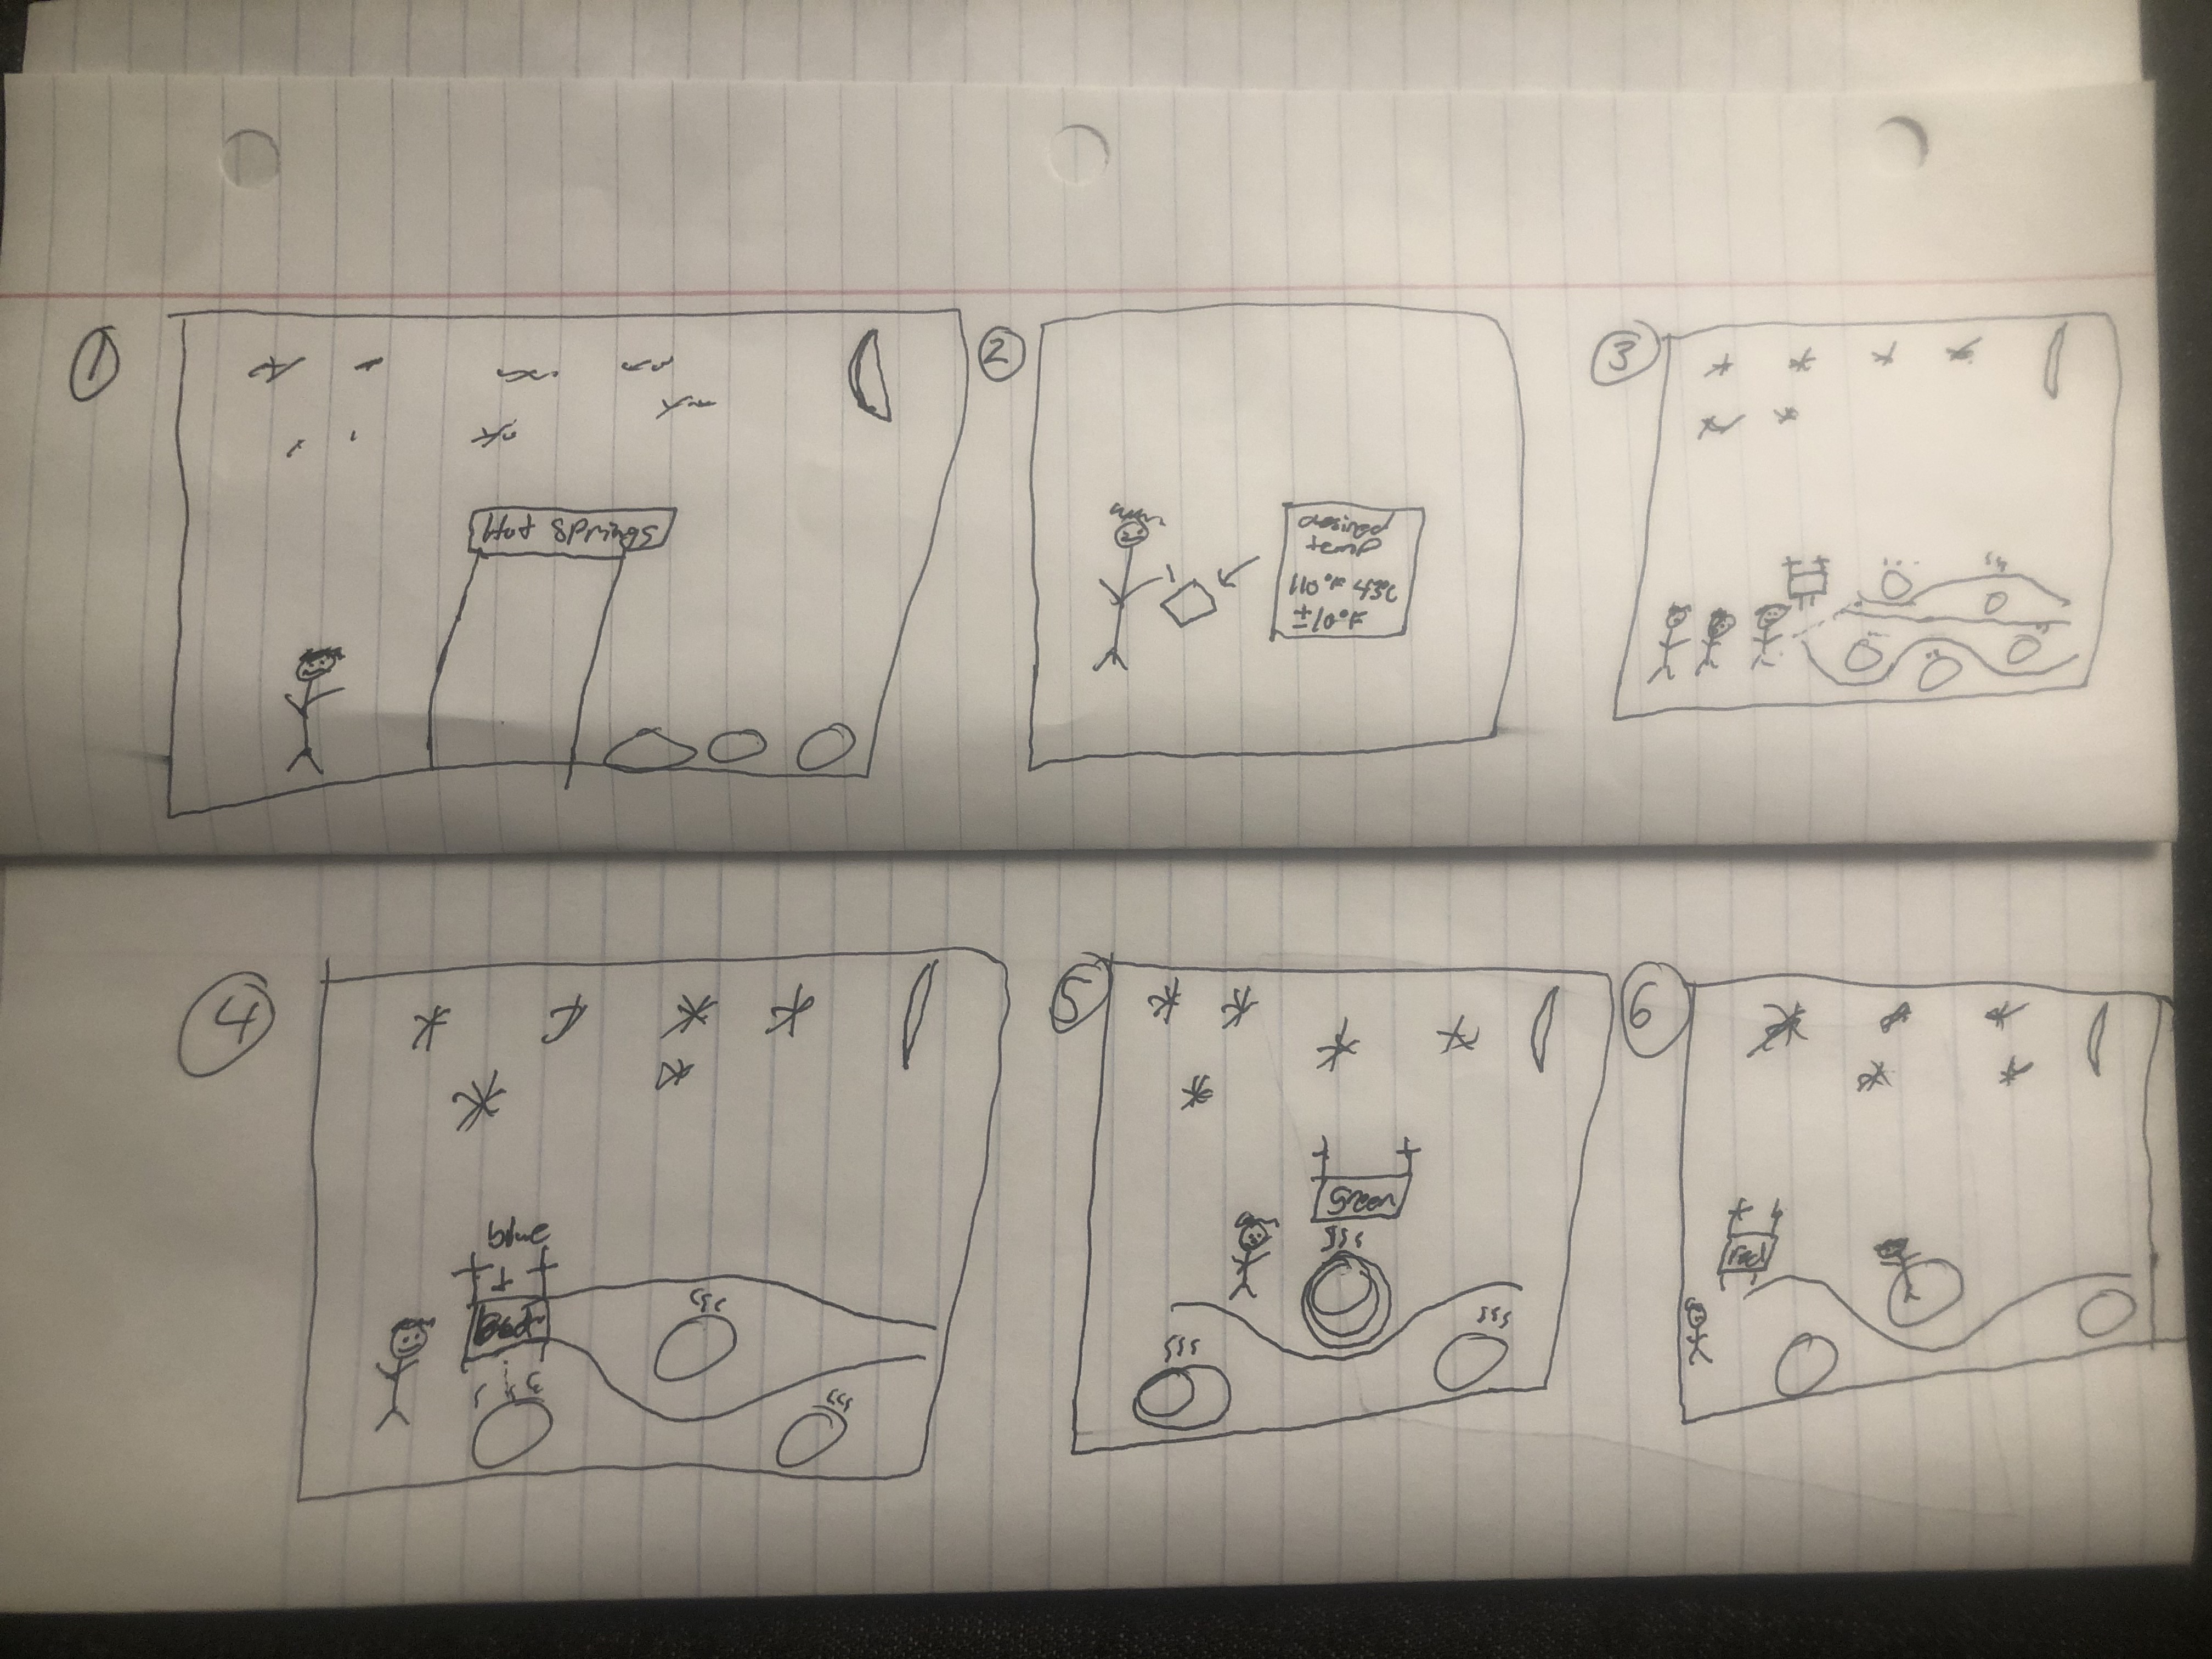 1
2
3
Hot Springs
desired
temp
110°F 43°C
±10°F
4
5
6
blue
Green
red